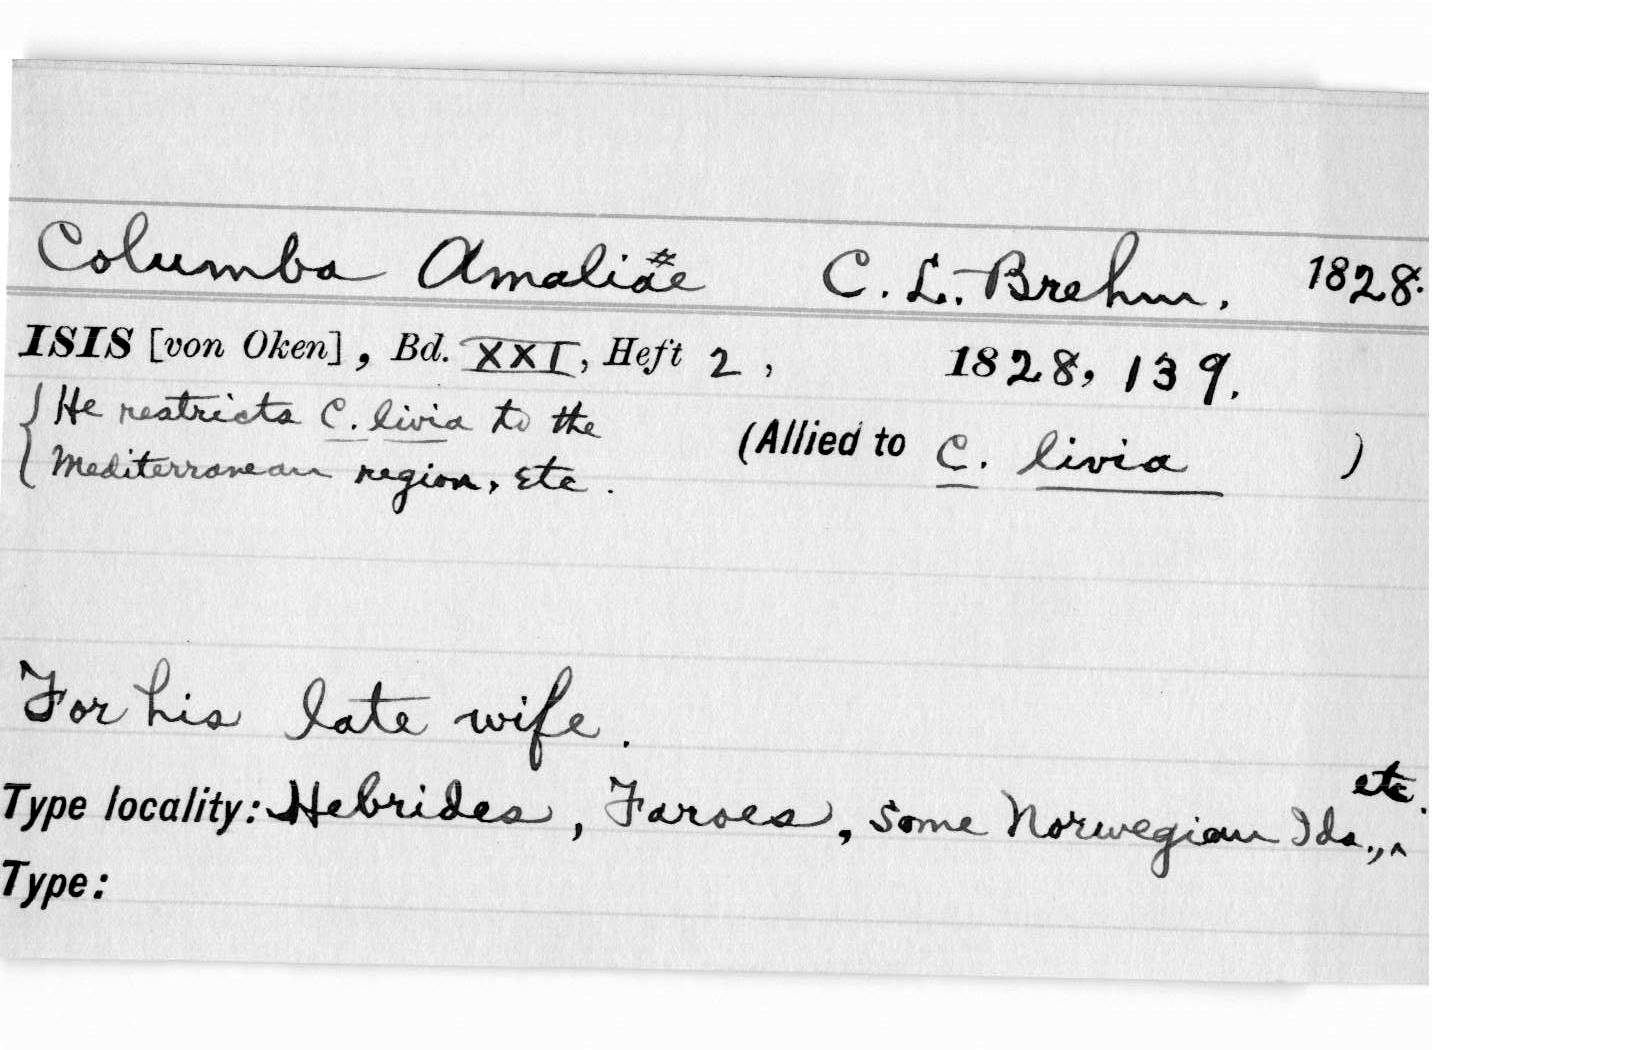 Columba Amaliae # C. L. Brehm. 1828.
ISIS [von Oken], Bd. XXI, Heft 2, 1828, 139.
{He restricts C. livia to the
Mediterranean region, etc.
(Allied to C. livia )
For his late wife.
Type locality: Hebrides, Faroes, some Norwegian Ids., ^ etc.
Type: